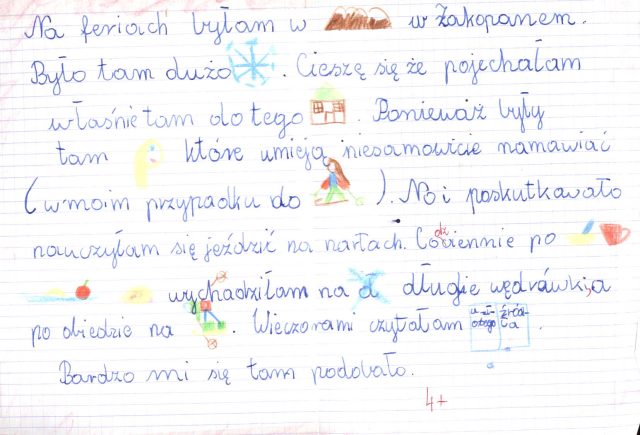 Na feriach byłam w w Zakopanem.
Było tam dużo . Cieszę się że pojechałam
właśnie tam do tego . Ponieważ były
tam które umieją niesamowicie namawiać
(w moim przypadku do ). No i poskutkowało
nauczyłam się jeździć na nartach. Codziennie po
wychodziłam na długie wędrówki, a
po obiedzie na . Wieczorami czytałam u złotego źródła .
Bardzo mi się tam podobało.
4+